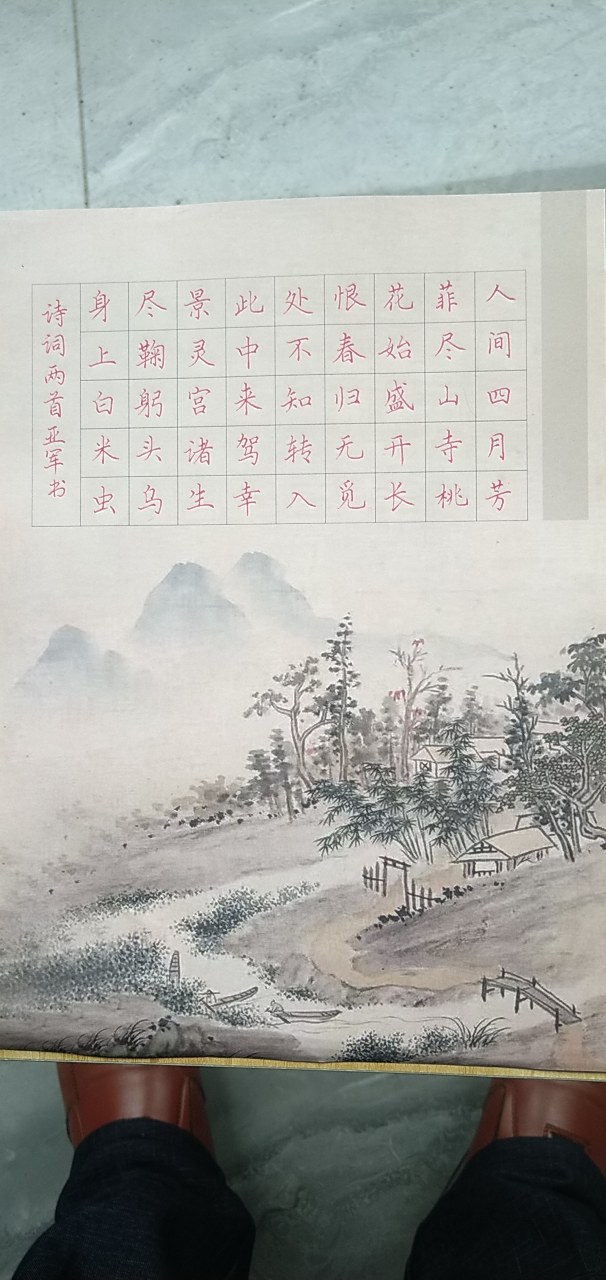 人间四月芳
菲尽山寺桃
花始盛开长
恨春归无觅
处不知转入
此中来驾幸
景灵宫诸生
尽鞠躬头乌
身上白米虫
诗词两首亚军书